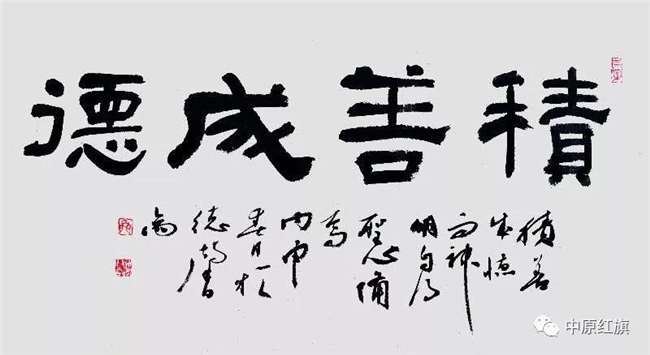 積善成德
積善
成德
而神
明自得
聖心備
焉
丙申
春日於
中原红旗